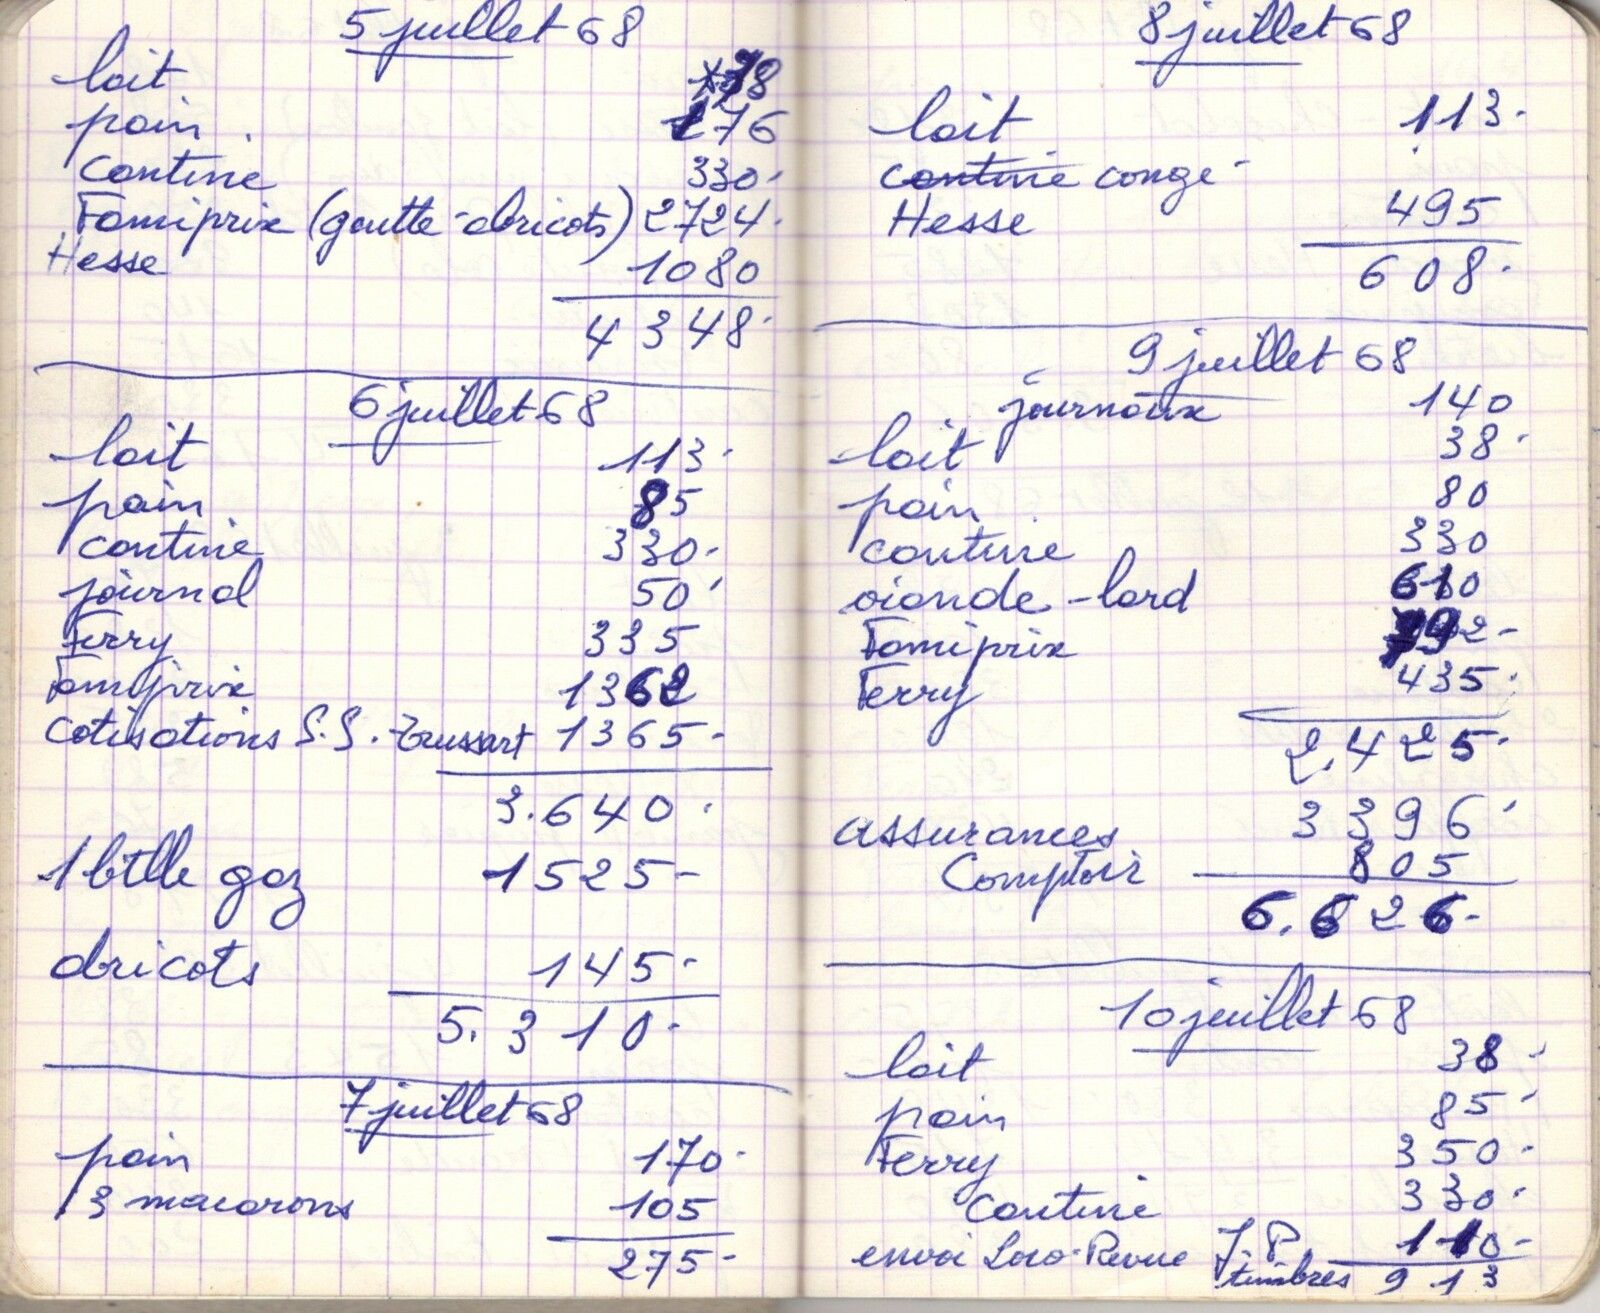 5 juillet 68
lait 38
pain 176
cantine 330.
Famiprix (goutte - abricots) 2724.
Hesse 1080
4348.
6 juillet 68
lait 113.
pain 85
cantine 330.
journal 50
Ferry 335
Famiprix 1362
cotisations S.S. Trussart 1365-
3.640.
1 btlle gaz 1525-
abricots 145.
5.310.
7 juillet 68
pain 170.
3 macarons 105
275-
8 juillet 68
lait 113.
cantine congé
Hesse 495
608.
9 juillet 68
journaux 140
lait 38.
pain 80
cantine 330
viande - lard 610
Famiprix 792-
Ferry 435.
2.425.
assurances 3396
Comptoir 805
6.626-
10 juillet 68
lait 38
pain 85
Ferry 350.
cantine 330.
envoi Loco-Revue J.P. 110-
timbres 913